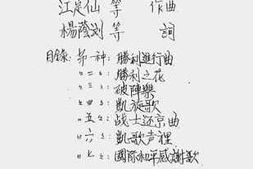 江定仙 等 作曲
楊蔭浏 等 詞
目錄: 第一种: 勝利進行曲
〃二〃: 勝利之花
〃三〃: 破陣樂
〃四〃: 凱旋歌
〃五〃: 战士还京曲
〃六〃: 凱歌声裡
〃七〃: 國際和平感謝歌